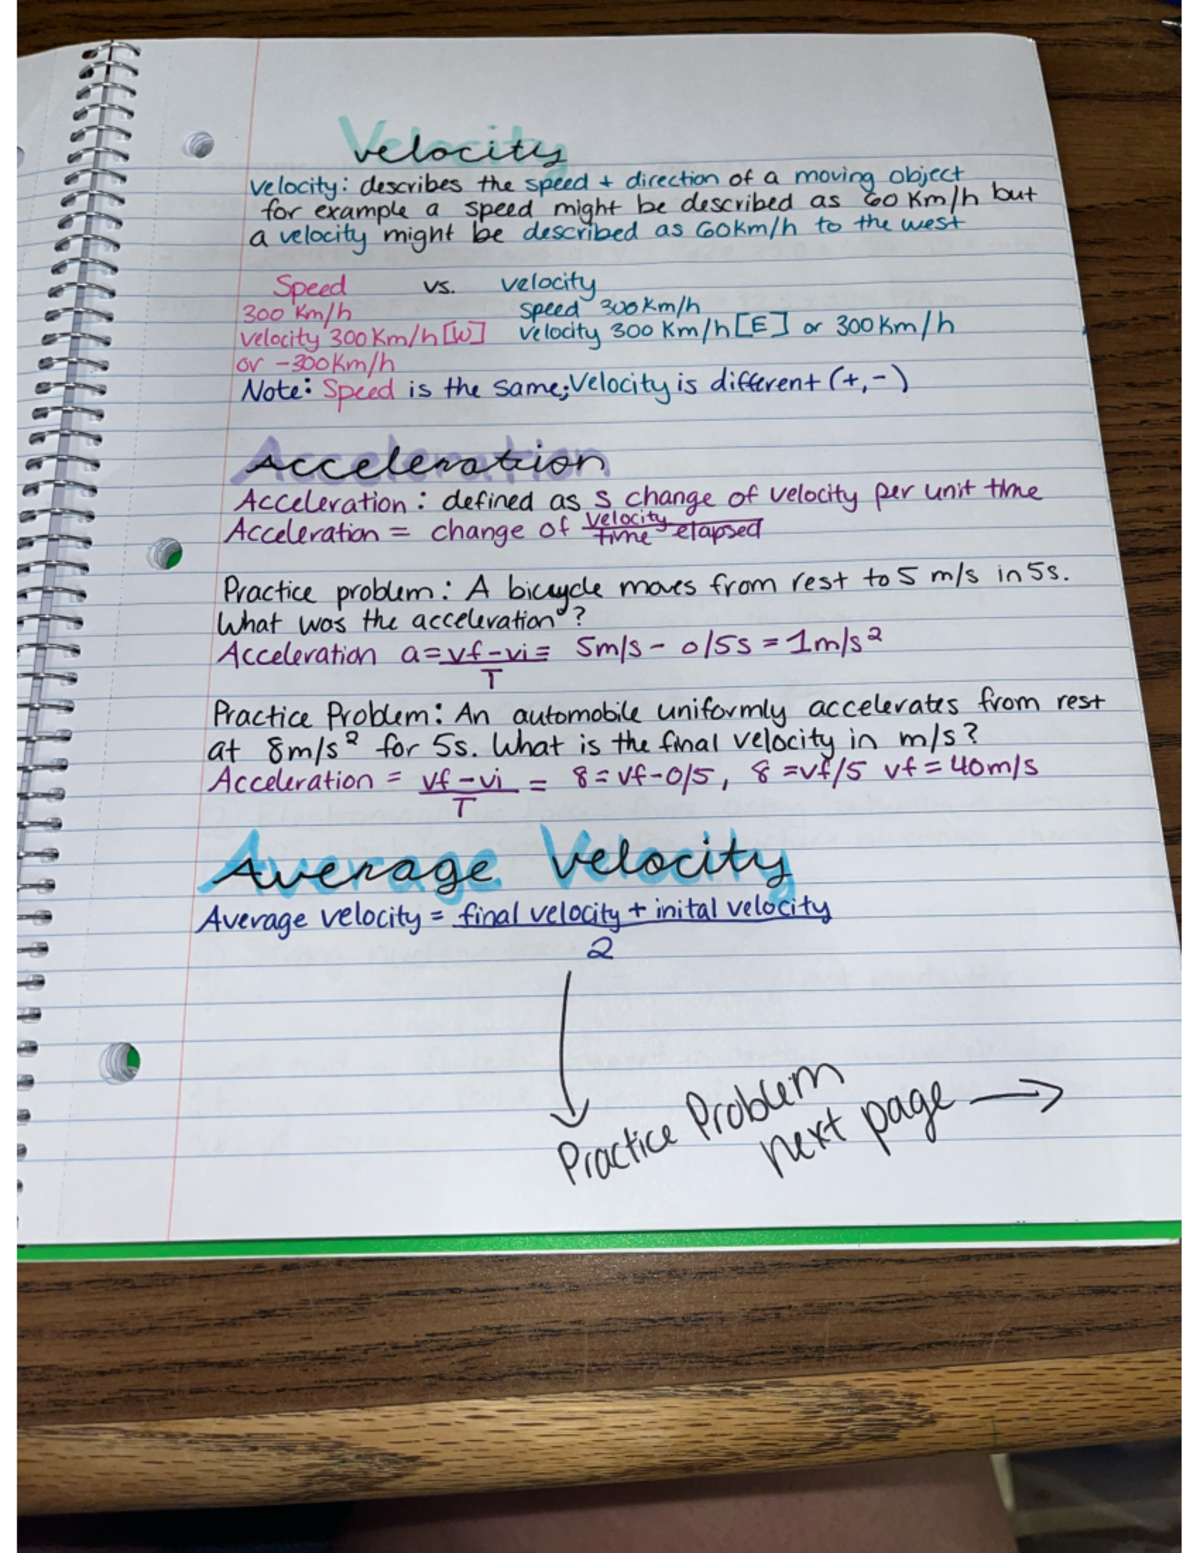 Velocity
velocity: describes the speed + direction of a moving object
for example a speed might be described as 60 Km/h but
a velocity might be described as 60Km/h to the west
Speed vs. velocity
300 Km/h speed 300 Km/h
velocity 300 Km/h [W] velocity 300 Km/h [E] or 300 Km/h
or -300 Km/h
Note: Speed is the same; Velocity is different (+,-)
Acceleration
Acceleration: defined as s change of velocity per unit time
Acceleration = change of velocity
time elapsed
Practice problem: A bicycle moves from rest to 5 m/s in 5s.
What was the acceleration?
Acceleration a=vf-vi= 5m/s - 0/5s = 1m/s²
T
Practice Problem: An automobile uniformly accelerates from rest
at 8m/s² for 5s. What is the final velocity in m/s?
Acceleration = vf-vi = 8=vf-0/5, 8=vf/5 vf=40m/s
T
Average Velocity
Average velocity = final velocity + inital velocity
2
Practice Problem
next page